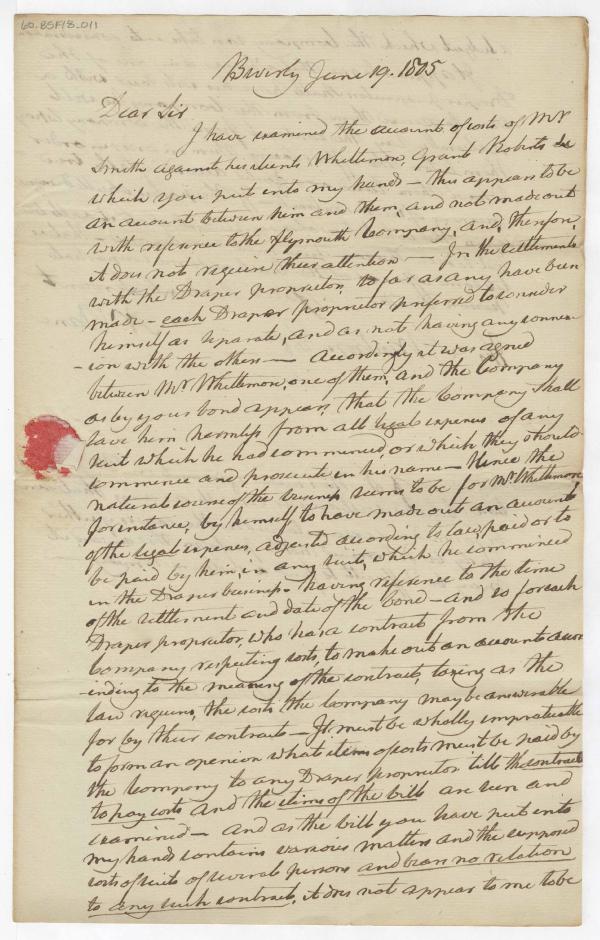 60.BSF13_011
Beverly June 19. 1805
Dear Sir
I have examined the account of costs of Mr
Smith against his clients Whittemore, Grant Roberts &c
which you put into my hands — this appears to be
an account between him and them, and not made out
with reference to the Plymouth Company, and, therefore,
it does not require their attention — In the settlements
with the Draper proprietors, so far as any have been
made — each Draper proprietor preferred to consider
himself as separate, and as not having any connex-
-ion with the others — Accordingly it was agreed
between Mr Whittemore, one of them, and the Company
as by your bond appears, that the Company shall
save him harmless from all legal expenses of any
suit which he had commenced, or which they should
commence and prosecute in his name — Hence the
natural course of the business seems to be for Mr Whittemore,
for instance, by himself to have made out an account
of the legal expenses, adjusted according to law, paid or to
be paid by him, in any suit, which he commenced
in the Draper business — having reference to the time
of the settlement and date of the bond — and so for each
Draper proprietor, who has a contract from the
Company respecting costs, to make out an account accor
-ding to the meaning of the contract, taxing as the
law requires, the costs the Company may be answerable
for by their contracts — It must be wholly impracticable
to form an opinion what items of costs must be paid by
the Company to any Draper proprietor till the contracts
to pay costs and the items of the bill are seen and
examined — and as the bill you have put into
my hands contains various matters and the supposed
costs of suits of several persons and bears no relation
to any such contract, it does not appear to me to be